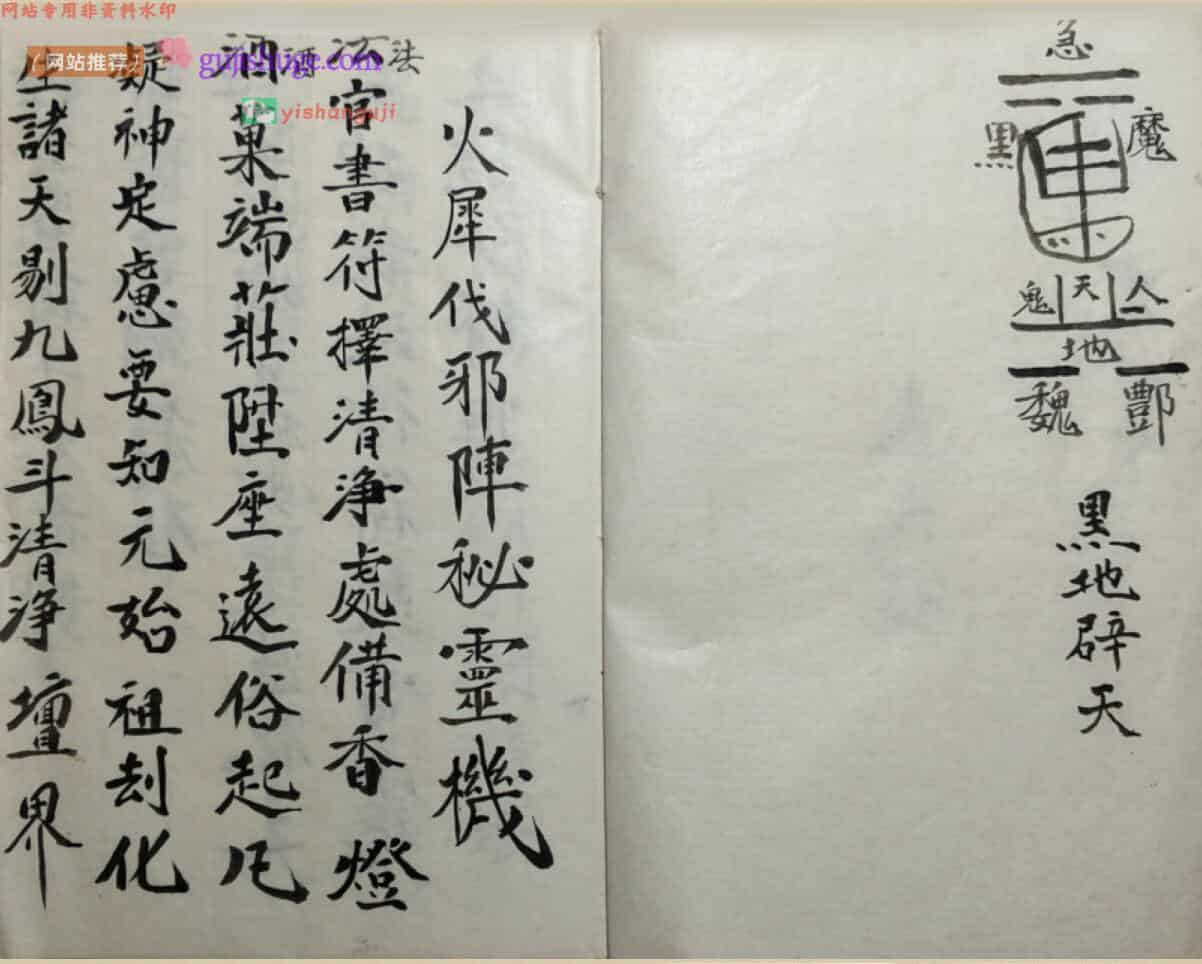 网站专用非资料水印
(网站推荐)
gujishuge.com
yishanguji
急
魔
黑
鬼 天
地
魏 酆
黑地辟天
火犀伐邪陣秘靈機
法
法官書符擇清淨處備香燈
酒
酒菓端莊陞座遠俗起凡
凝神定慮要知元始祖刦化
生諸天剔九鳳斗清淨壇界